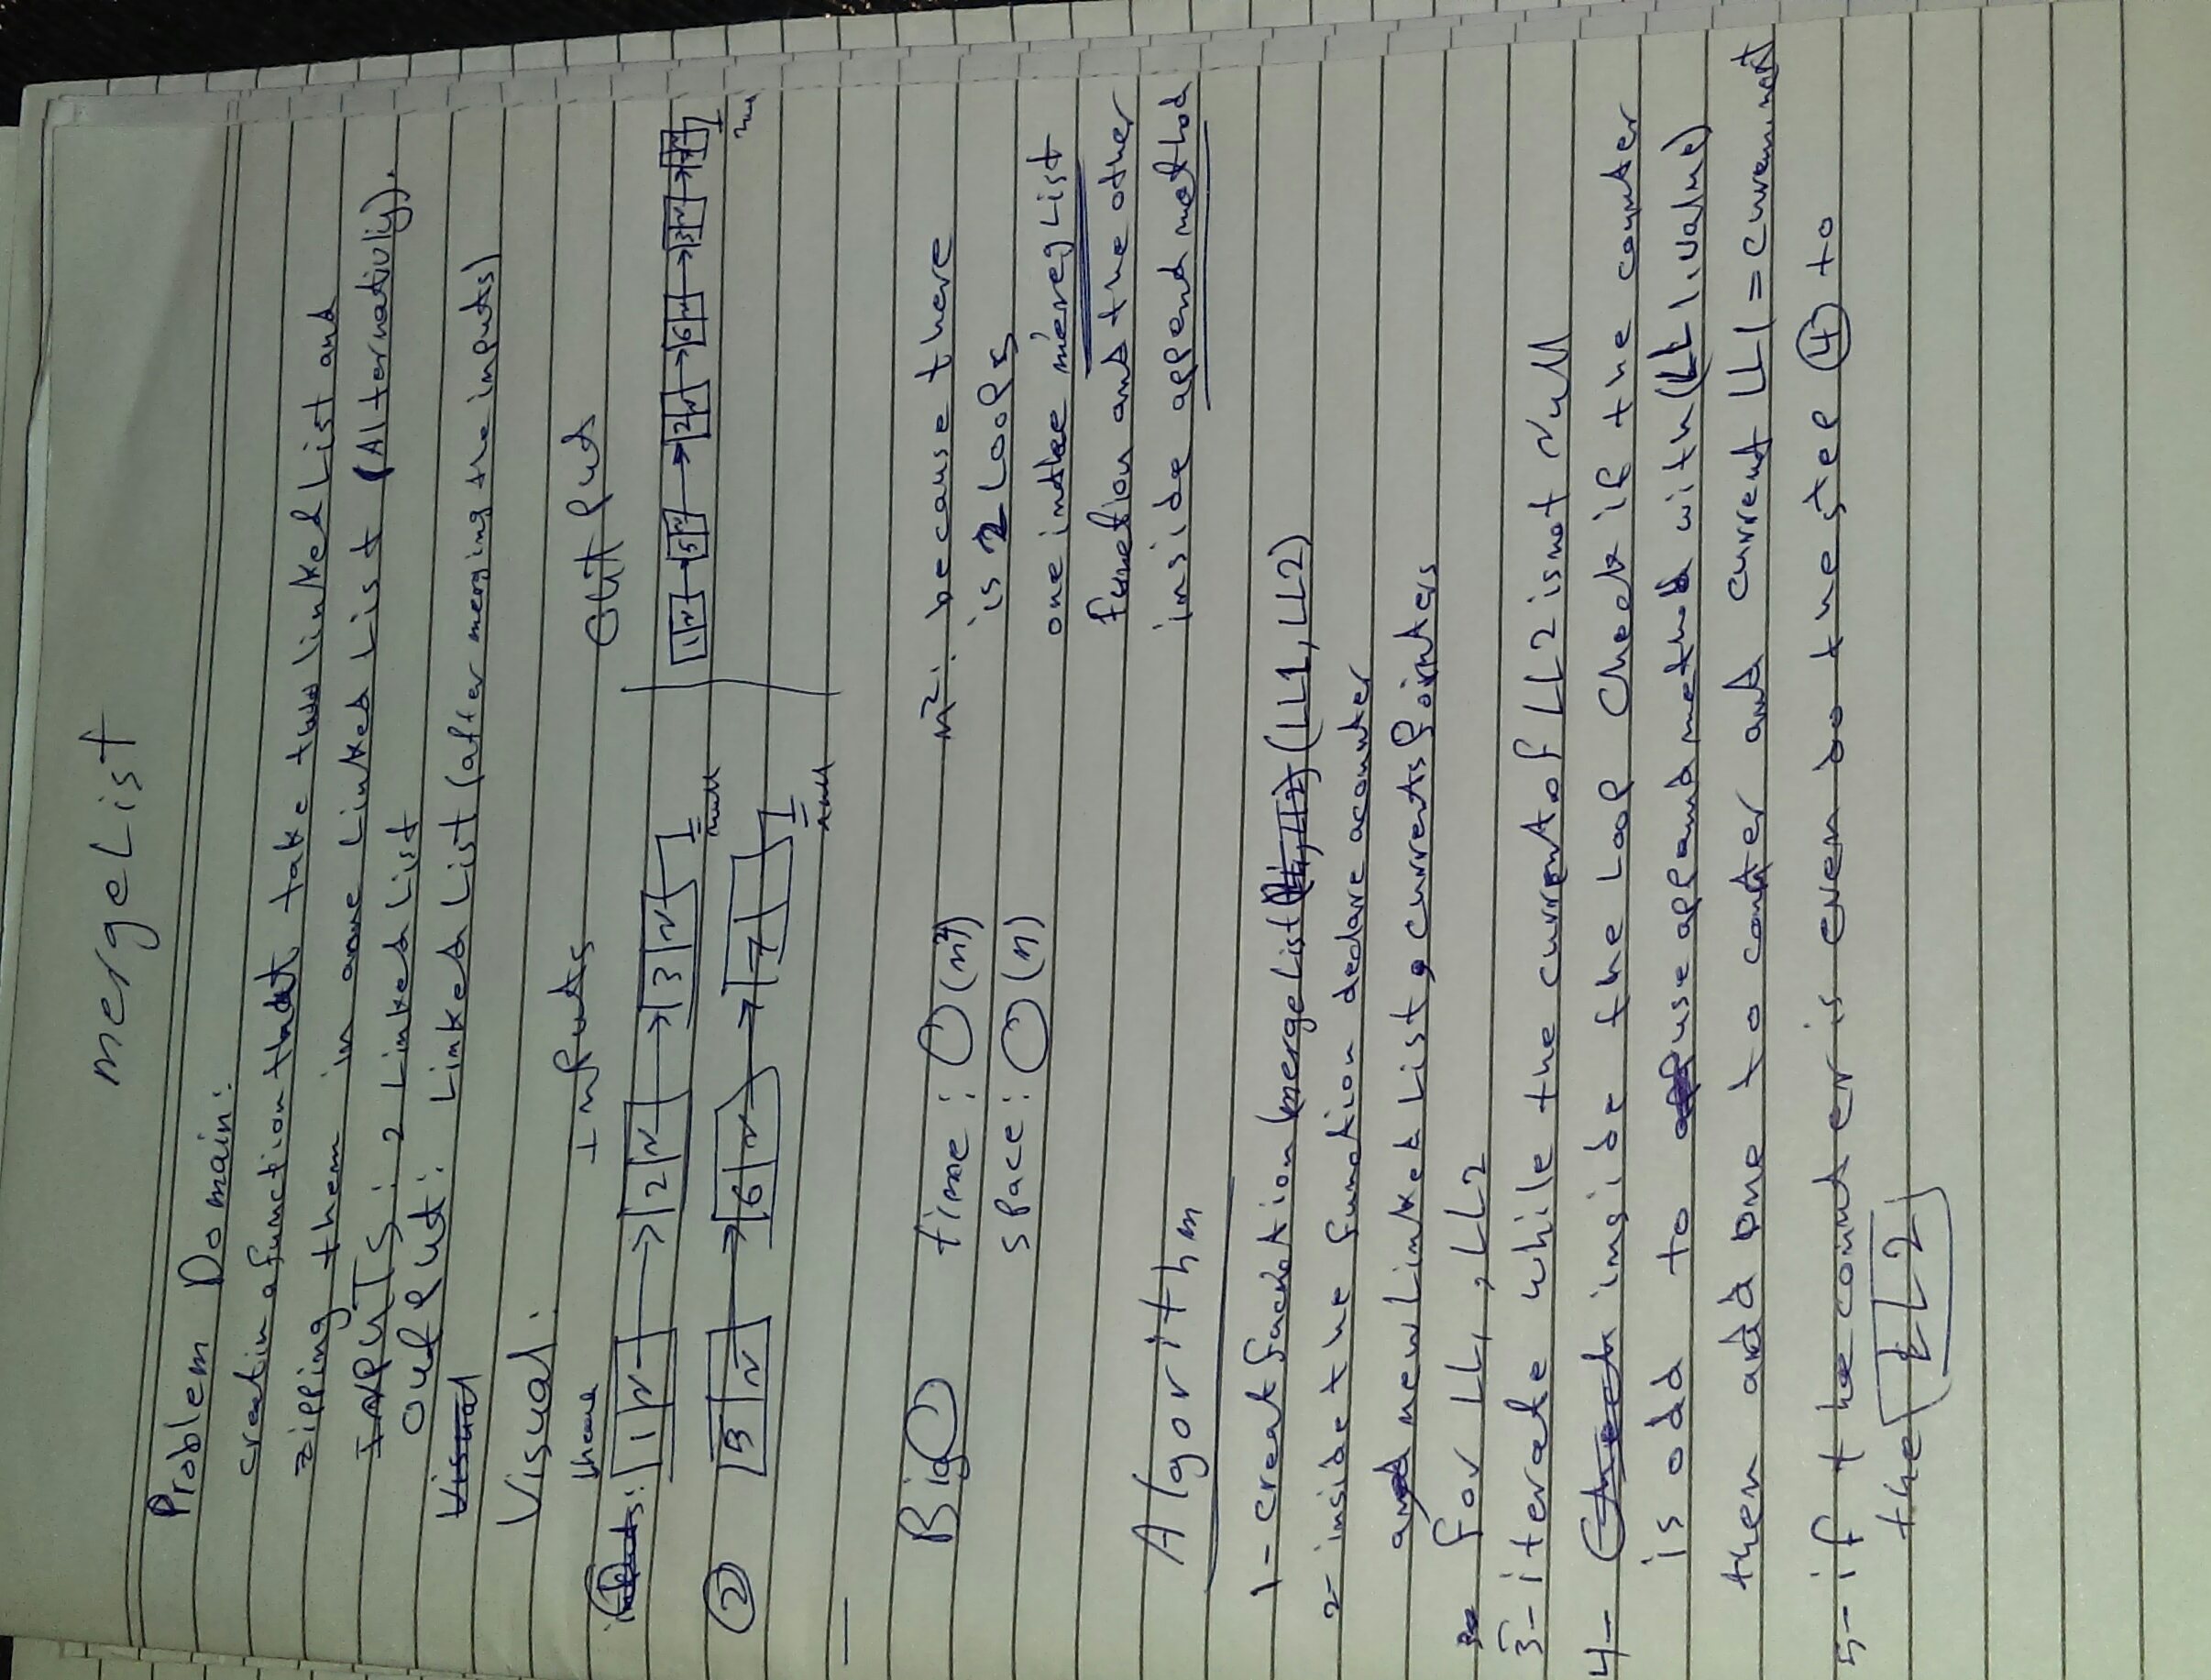 mergeList
Problem Domain:
creatin a function that take two linked List and
zipping them in one Linked List (Alternativly).
INPUTS: 2 Linked List
OutPut: Linked List (after merging the inputs)
Visual
Visual:
Inputs OutPut
head
1 N → 2 N → 3 N null
1 N → 5 N → 2 N → 6 N → 3 N → 7 null
② 5 N → 6 N → 7 null
BigO time: O(n²) n²: because there
space: O(n) is 2 Loops
one in the mereg List
function and the other
inside append method
Algorithm
1- creat function mergeList (LL1, LL2)
2- inside the function declare acounter
and new Linked List, currents points
for LL1, LL2
3- iterate while the current of LL2 is not Null
4- Check inside the Loop Check if the counter
is odd to use append method with (LL1.value)
then add one to conter and current LL1 = curren.next
5- if the counter is even do the step ④ to
the LL2